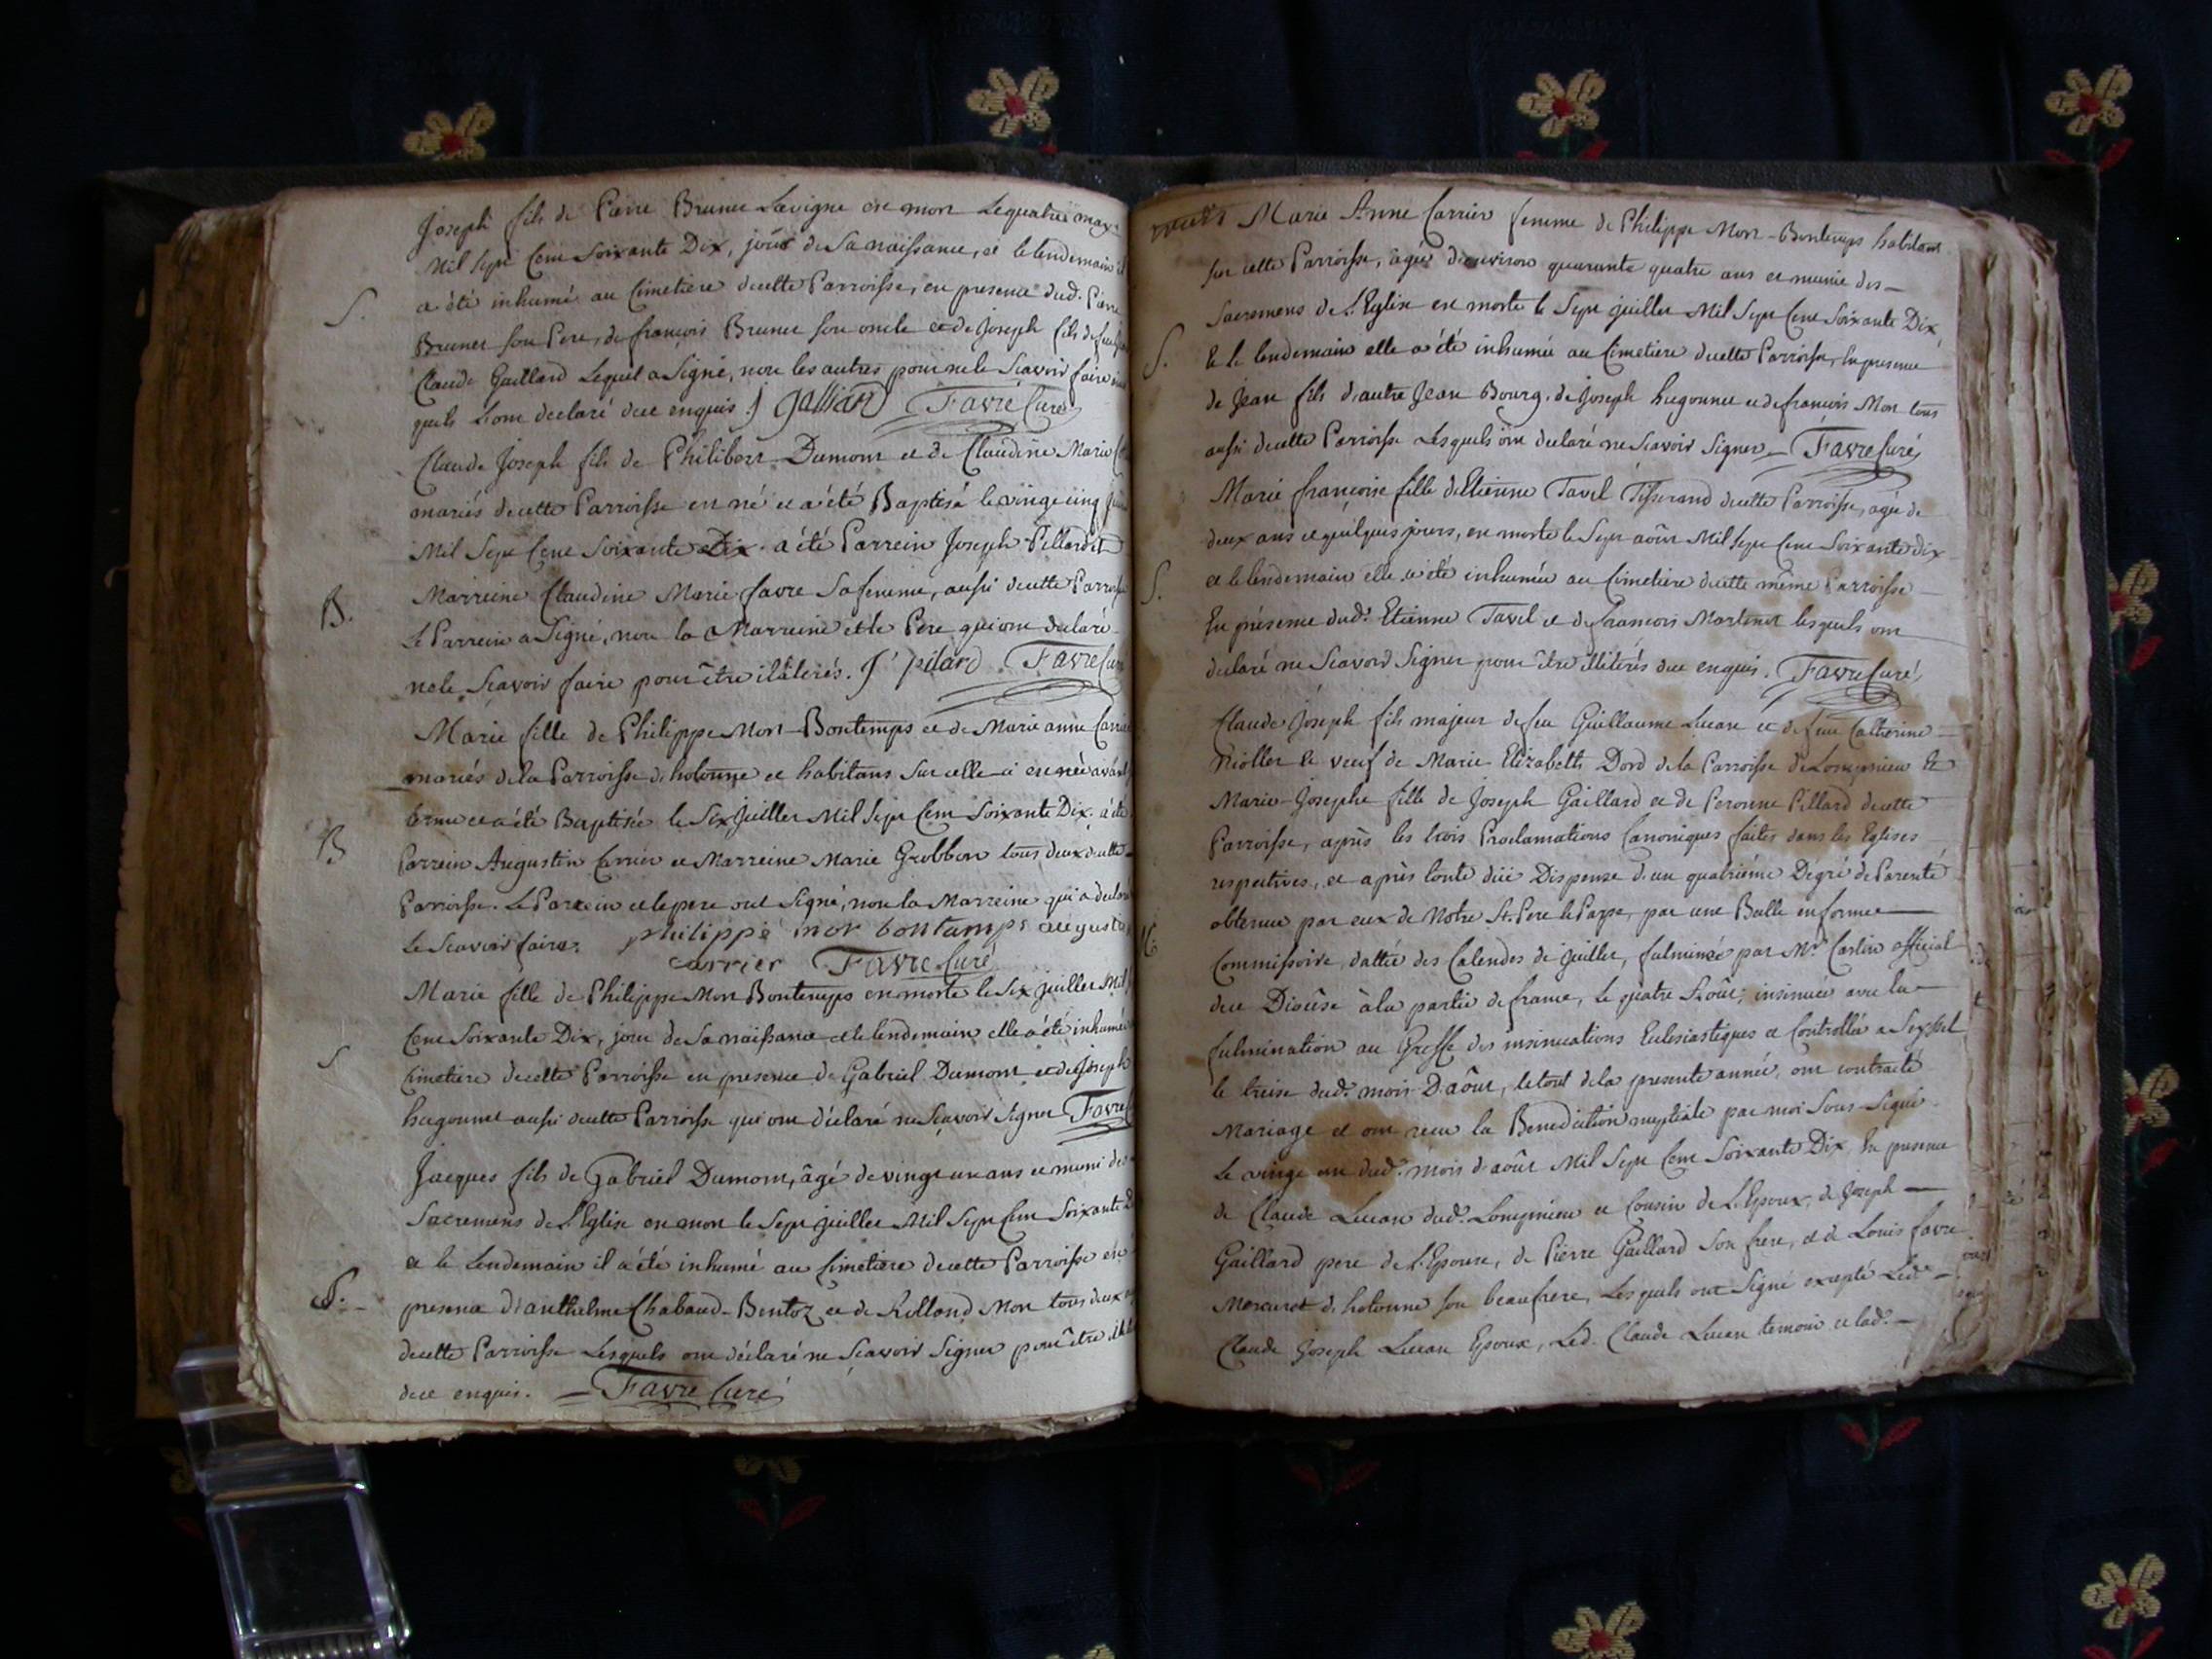 Joseph fils de Pierre Brunet Lavigne est mort le quatre may
Mil Sept Cent Soixante Dix, jour de Sa naissance, et le lendemain il
S.
a été inhumé au Cimetiere de cette Parroisse, en presence dud. Pierre
Brunet Son Pere, de françois Brunet Son oncle et de Joseph fils de feu
Claude Gaillard Lequel a Signé, non les autres pour ne le Scavoir faire
qu'ils L'ont declaré de ce enquis. J Galliard Favre Curé
Claude Joseph fils de Philibert Dumont et de Claudine Marie
mariés de cette Parroisse est né et a été Baptisé le vingt cinq
Mil Sept Cent Soixante Dix. a été Parrein Joseph Pillard et
B.
Marreine Claudine Marie favre Sa femme, aussi de cette Parroisse
Le Parrein a Signé, non la Marreine et le Pere qui ont declaré
ne le Scavoir faire pour être ilitérés. J pilard Favre Curé
Marie fille de Philippe Mon-Bontemps et de Marie anne Carrier
mariés de la Parroisse d'hotonne et habitans Sur celle ci est née avant
terme et a été Baptisée le Six Juillet Mil Sept Cent Soixante Dix. a été
B
Parrein Augustin Carrier et Marreine Marie Grobbon tous deux de cette
Parroisse. Le Parrein et le pere ont Signé, non la Marreine qui a declaré
le Scavoir faire. philippe mon bontamps augustin
carrier Favre Curé
Marie fille de Philippe Mon Bontemps est morte le Six juillet Mil
Cent Soixante Dix, jour de Sa naissance et le lendemain elle a été inhumée
S
Cimetiere de cette Parroisse en presence de Gabriel Dumont et de Joseph
hugonnet aussi de cette Parroisse qui ont déclaré ne Scavoir Signer Favre
Jacques fils de Gabriel Dumont, âgé de vingt un ans et muni des
Sacremens de L'Eglise est mort le Sept juillet Mil Sept Cent Soixante
et le lendemain il a été inhumé au Cimetiere de cette Parroisse en
S.
presence d'anthelme Chabaud-Bentoz et de Rolland Mon tous deux
de cette Parroisse Lesquels ont déclaré ne Scavoir Signer pour être
de ce enquis. Favre Curé
Marie Anne Carrier femme de Philippe Mon-Bontemps habitant
Sur cette Parroisse, âgée d'environ quarante quatre ans et munie des
Sacremens de L'Eglise est morte le Sept juillet Mil Sept Cent Soixante Dix
S.
Et le lendemain elle a été inhumée au Cimetiere de cette Parroisse, En presence
de Jean fils d'autre Jean Bourg, de Joseph hugonnet et de françois Mon tous
aussi de cette Parroisse Lesquels ont declaré ne Scavoir Signer. Favre Curé
Marie françoise fille d'Etienne Tavel Tisserand de cette Parroisse, agée de
deux ans et quelques jours, est morte le Sept août Mil Sept Cent Soixante dix
S.
et le lendemain elle a été inhumée au Cimetiere de cette même Parroisse
En présence dud. Etienne Tavel et de françois Martinot lesquels ont
declaré ne Scavoir Signer pour être illitérés de ce enquis. Favre Curé
Claude Joseph fils majeur de feu Guillaume Lucan et de feue Catherine
Riollet et veuf de Marie Elizabeth Dord de la Parroisse de Lompnieu Et
Marie-Josephe fille de Joseph Gaillard et de Peronne Pillard de cette
Parroisse, après les trois Proclamations Canoniques faites dans les Eglises
respectives, et après toute due Dispense d'un quatriéme Dégré de Parenté
obtenue par eux de Notre St. Pere le Pape, par une Bulle en forme
Commissoire, dattée des Calendes de juillet, fulminée par Mr. Carlin official
de ce Diocèse à la partie de france, le quatre Août, insinuée avec la
fulmination au Greffe des insinuations Eclesiastiques et Controllée a Seyssel
le treise dud. mois D'août, le tout de la presente année, ont contracté
Mariage et ont recu la Benediction nuptiale par moi Sous-Signé
Le vingt un dud. mois d'août Mil Sept Cent Soixante Dix, En presence
de Claude Lucan dud. Lompnieu et Cousin de L'Epoux, de Joseph
Gaillard pere de L'Epouse, de Pierre Gaillard Son frere, et de Louis favre
Mercuret d'hotonne Son beaufrere, Lesquels ont Signé excepté Led.
Claude Joseph Lucan Epoux, Led. Claude Lucan temoin et lad.